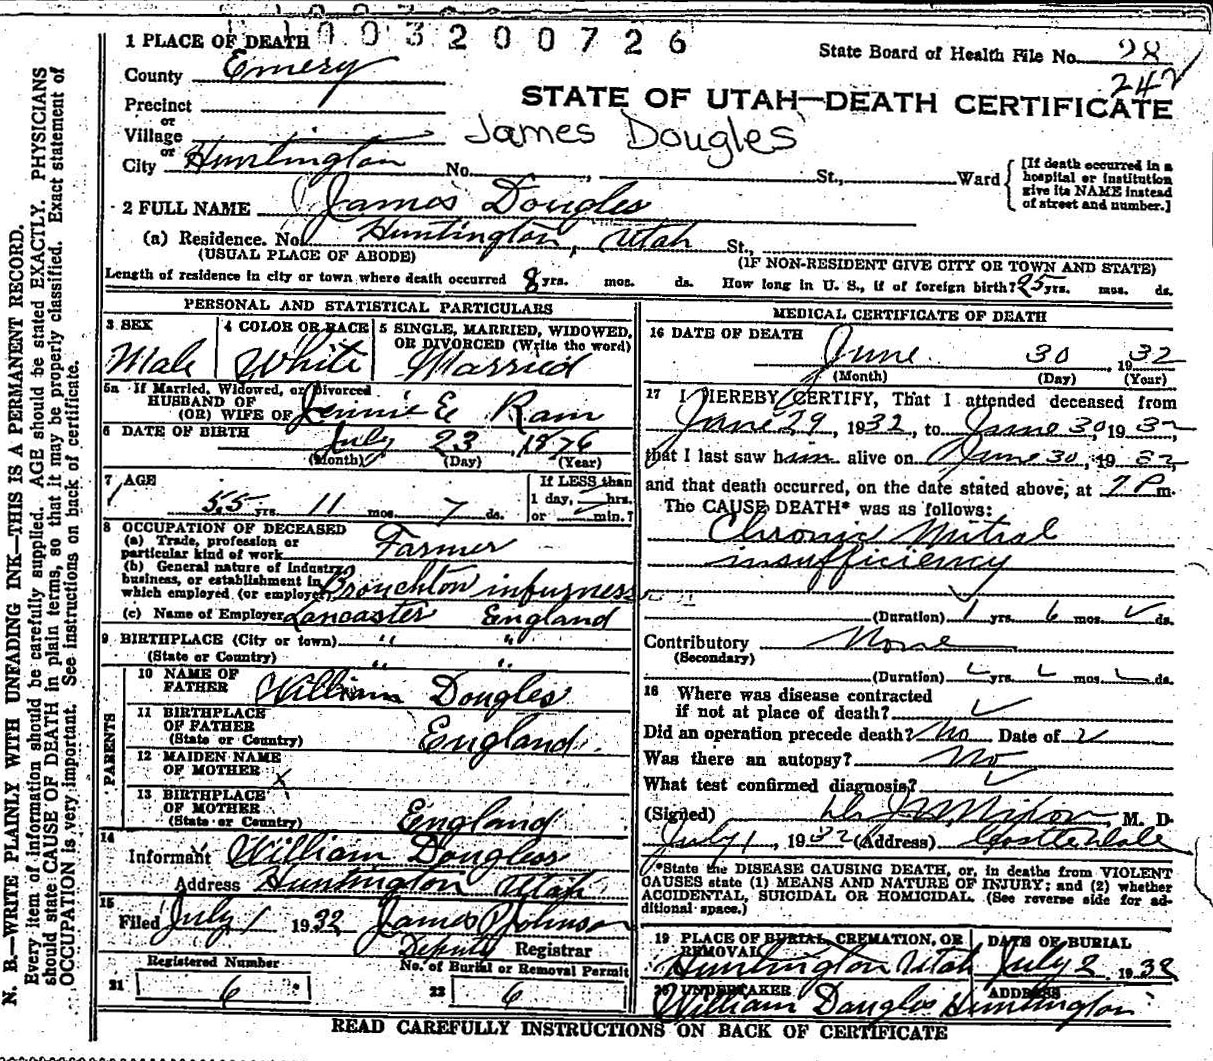 1003200726
1 PLACE OF DEATH
State Board of Health File No. 28
242
County Emery
STATE OF UTAH—DEATH CERTIFICATE
Precinct
or
Village
James Dougles
or
City Huntington No. St., Ward
[If death occurred in a
hospital or institution
give its NAME instead
of street and number.]
2 FULL NAME James Dougles
(a) Residence. No. Huntington, Utah St.,
(USUAL PLACE OF ABODE) (IF NON-RESIDENT GIVE CITY OR TOWN AND STATE)
Length of residence in city or town where death occurred 8 yrs. mos. ds. How long in U. S., if of foreign birth? 25 yrs. mos. ds.
PERSONAL AND STATISTICAL PARTICULARS
3 SEX
Male
4 COLOR OR RACE
White
5 SINGLE, MARRIED, WIDOWED,
OR DIVORCED (Write the word)
Married
5a If Married, Widowed, or Divorced
HUSBAND OF
(OR) WIFE OF Jennie E Ram
6 DATE OF BIRTH July 23 1876
(Month) (Day) (Year)
7 AGE
55 yrs. 11 mos. 7 ds.
If LESS than
1 day, hrs.
or min.?
8 OCCUPATION OF DECEASED
(a) Trade, profession or
particular kind of work Farmer
(b) General nature of industry,
business, or establishment in
which employed (or employer) Brouchton infurness
(c) Name of Employer Lancaster England
9 BIRTHPLACE (City or town) " "
(State or Country) " "
PARENTS
10 NAME OF
FATHER William Dougles
11 BIRTHPLACE
OF FATHER
(State or Country) England
12 MAIDEN NAME
OF MOTHER X
13 BIRTHPLACE
OF MOTHER
(State or Country) England
14
Informant William Dougles
Address Huntington Utah
15
Filed July 1 1932 James P Johnson
Deputy Registrar
Registered Number
21 6
No. of Burial or Removal Permit
22 6
MEDICAL CERTIFICATE OF DEATH
16 DATE OF DEATH
June 30 1932
(Month) (Day) (Year)
17 I HEREBY CERTIFY, That I attended deceased from
June 29, 1932, to June 30, 1932
that I last saw him alive on June 30, 1932,
and that death occurred, on the date stated above, at 7 P m.
The CAUSE DEATH* was as follows:
Chronic Mitral
insufficiency
(Duration) 1 yrs. 6 mos. ds.
Contributory None
(Secondary)
(Duration) yrs. mos. ds.
18 Where was disease contracted
if not at place of death?
Did an operation precede death? No Date of
Was there an autopsy? No
What test confirmed diagnosis?
(Signed) Nixon, M. D.
July 1, 1932 (Address) Castle Dale
*State the DISEASE CAUSING DEATH, or, in deaths from VIOLENT
CAUSES state (1) MEANS AND NATURE OF INJURY; and (2) whether
ACCIDENTAL, SUICIDAL OR HOMICIDAL. (See reverse side for ad-
ditional space.)
19 PLACE OF BURIAL, CREMATION, OR
REMOVAL
Huntington Utah
DATE OF BURIAL
July 2 1932
20 UNDERTAKER
William Dougles
ADDRESS
Huntington
READ CAREFULLY INSTRUCTIONS ON BACK OF CERTIFICATE
N. B.—WRITE PLAINLY WITH UNFADING INK—THIS IS A PERMANENT RECORD.
Every item of information should be carefully supplied. AGE should be stated EXACTLY. PHYSICIANS
should state CAUSE OF DEATH in plain terms, so that it may be properly classified. Exact statement of
OCCUPATION is very important. See instructions on back of certificate.